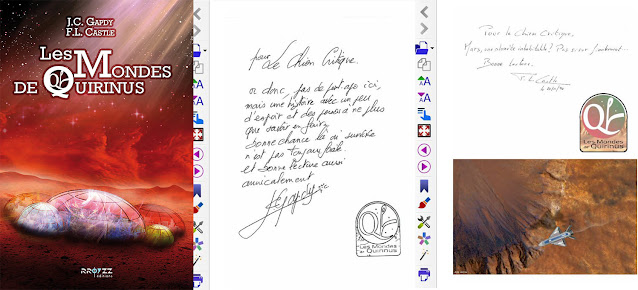 J.C. GAPDY
F.L. CASTLE
LES
MONDES
DE QUIRINUS
RROYZZ
éditions
pour
Le Chien Critique,
ici,
mais une histoire avec un peu
d'espoir et des
bonne chance là où survivre
n'est pas toujours facile
et bonne lecture aussi
amicalement
JCGapdy
Les Mondes
de Quirinus
Pour le Chien Critique,
Mars, une planète inhabitable ? Pas si sûr finalement...
Bonne lecture.
F. L. Castle
Les Mondes
de Quirinus